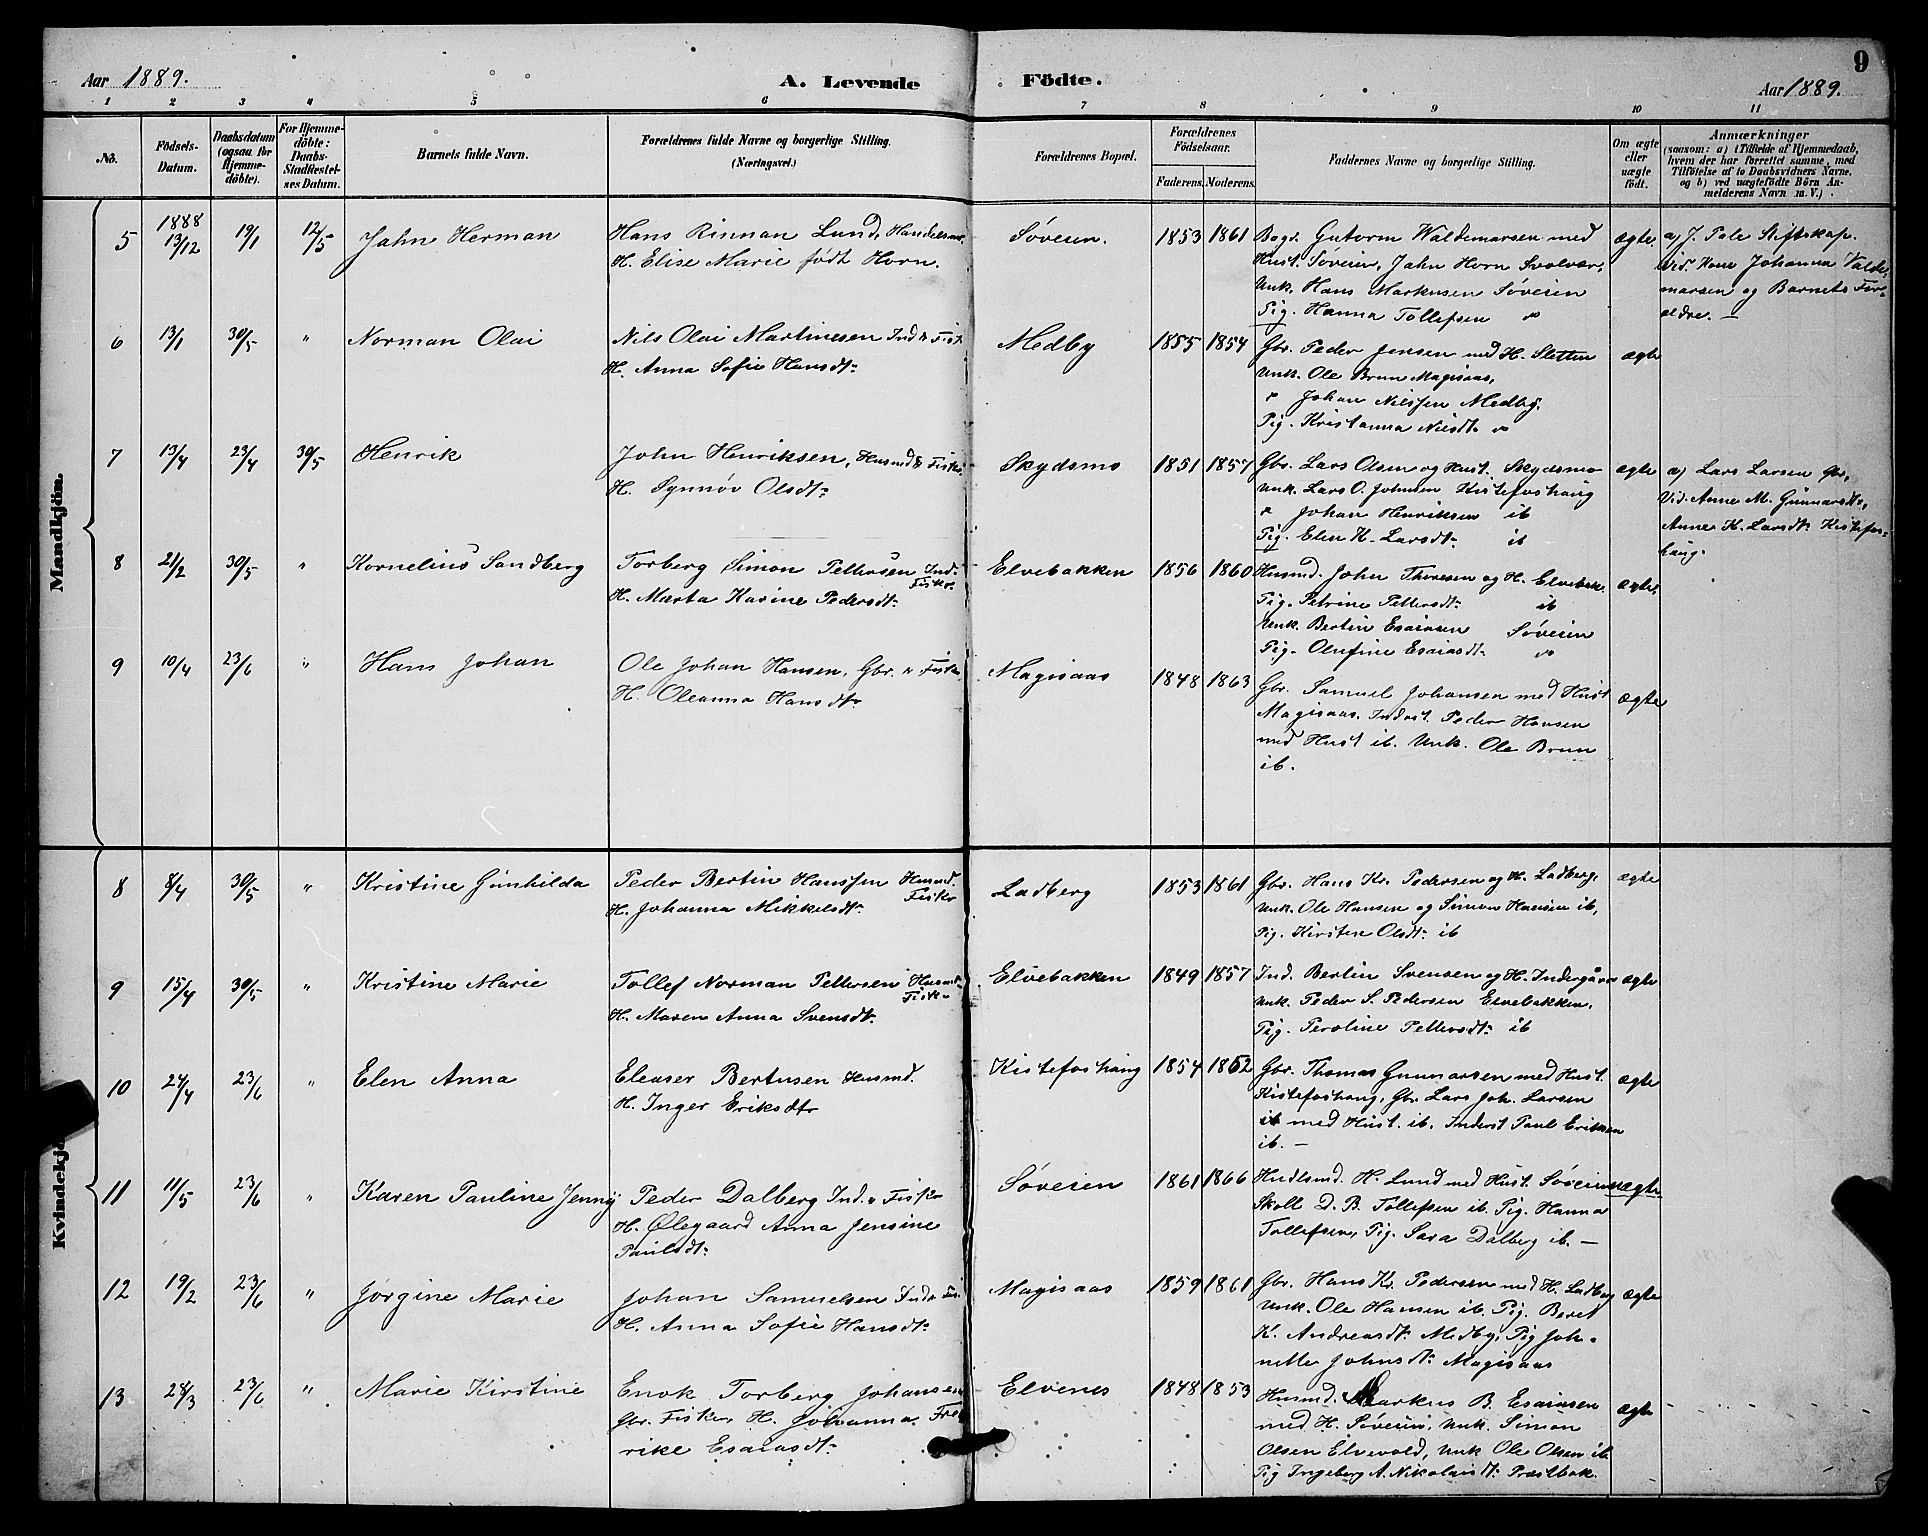 9
Aar 1889. A. Levende Födte. Aar 1889.
1 2 3 4 5 6 7 8 9 10 11
No. Födsels-Datum. Daabsdatum (ogsaa for Hjemme-döbte). For Hjemme-döbte: Daabs-Stadfæstel-ses Datum. Barnets fulde Navn. Forældrenes fulde Navne og borgerlige Stilling. (Næringsvei.) Forældrenes Bopæl. Forældrenes Födselsaar. Faderens. Moderens. Faddernes Navne og borgerlige Stilling. Om ægte eller uægte födt. Anmærkninger (saasom: a) i Tilfælde af Hjemmedaab, hvem der har forrettet samme, med Tilföielse af to Daabsvidners Navne, og b) ved uægtefödte Börn An-melderens Navn m. V.)
Mandkjön.
5 1888 13/12 19/1 12/5 Jahn Herman Hans Rinnan Lund, Handelsm. Søveien. 1853 1861 Bogr. Gutorm Waldemarsen med ægte. a) J. Pale Stiftskap.
H. Elise Marie født Horn. Hust. Soveien, Jahn Horn Svolvær, Vid. Kone Johanna Valde-
Unk. Hans Markusen Søveien marsen og Barnets For-
Pig. Hanna Tollefsen " ældre. —
6 13/1 30/5 " Norman Olai Nils Olai Martinesen Ind & Fisk. Medby 1855 1854 Gbr. Peder Jensen med H. Sletten ægte
H. Anna Sofie Hansdt: Unk. Ole Brun Magisaas,
" Johan Nilssen Medby.
Pig. Kristanna Nilsdt. "
7 13/4 23/4 30/5 Henrik John Henriksen, Husmd & Fisk. Skydsmo 1851 1857 Gbr. Lars Olsen og Hust. Skydsmo ægte a) Lars Larsen Gbr.
H. Synnøv Olsdt: Unk. Lars O. Johnsen Kistefoshaug Vid. Anne M. Gunnarsdt.
" Johan Henriksen ib Anne K. Larsdt. Kistefos-
Pig. Elen K. Larsdt: ib haug.
8 21/2 30/5 " Kornelius Sandberg Torberg Simon Pettersen Ind. Fisker Elvebakken 1856 1860 Husmd. John Thoresen og H. Elvebak. ægte
H. Marta Karine Pedersdt: Pig. Petrine Pettersdt: ib
Unk. Bertin Esaiasen Søveien
Pig. Olufine Esaiasdt: "
9 10/4 23/6 " Hans Johan Ole Johan Hansen, Gbr. & Fisk. Magisaas 1848 1863 Gbr. Samuel Johansen med Hust ægte
H. Oleanna Hansdt: Magisaas. Inderst. Peder Hansen
med Hust ib. Unk. Ole Brun
ib.
Kvindekj
8 8/4 30/5 " Kristine Gunhilda Peder Bertin Hanssen Husmd. Fisker Ladberg 1853 1861 Gbr. Hans Kr. Pedersen og H. Ladberg. ægte
H. Johanna Mikkelsdt: Unk. Ole Hansen og Simon Hansen ib,
Pig. Kirstine Olsdt: ib
9 15/4 30/5 " Kristine Marie Tollef Norman Pettersen Husmd. Fisk. Elvebakken 1849 1857 Ind. Bertin Svensen og H. Indergård ægte
H. Maren Anna Svensdt. Unk. Peder S. Pedersen Elvebakken,
Pig. Peroline Pettersdt: ib
10 24/4 23/6 " Elen Anna Eleaser Bertusen Husmd. Kistefoshaug 1854 1862 Gbr. Thomas Gunnarsen med Hust. ægte
H. Inger Eriksdtr Kistefoshaug, Gbr. Lars Joh. Larsen
ib med Hust. ib. Inderst Paul Eriksen
ib. —
11 11/5 23/6 " Karen Pauline Jenny Peder Dalberg Ind. & Fisk. Søveien 1861 1866 Hndlsmd. H. Lund med Hust. Søveien uægte
H. Ølegaard Anna Jensine Skoll D. B. Tollefsen ib. Pig. Hanna
Paulsdt: Tollefsen, Pig. Sara Dalberg ib. —
12 19/2 23/6 " Jørgine Marie Johan Samuelsen Ind & Fis. Magisaas 1859 1861 Gbr. Hans Kr. Pedersen med H. Ladberg ægte
H. Anna Sofie Hansdt: Unk. Ole Hansen ib. Pig. Beret
K. Andreasdt: Medby, Pig Joh-
nette Johnsdt: Magisaas
13 28/3 23/6 " Marie Kirstine Enok Torberg Johansen Elvenes 1848 1853 Husmd. Markus B. Esaiasen ægte
Gbr. Fisker, H. Johanna Fred- med H. Søveien, Unk. Simon
rike Esaiasdt: Olsen Elvevold, Unk Ole Olsen ib.
Pig Ingeberg A. Nikolaisdt: Præstbak.